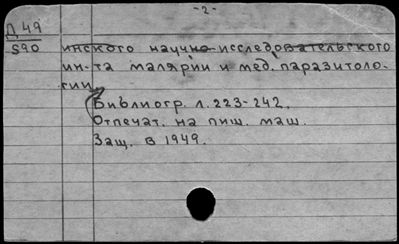 -2-
Д 49
590
инского научно-исследовательского
ин-та малярии и мед. паразитоло-
гии.
Библиогр. л. 223-242.
Отпечат. на пиш. маш.
Защ. в 1949.